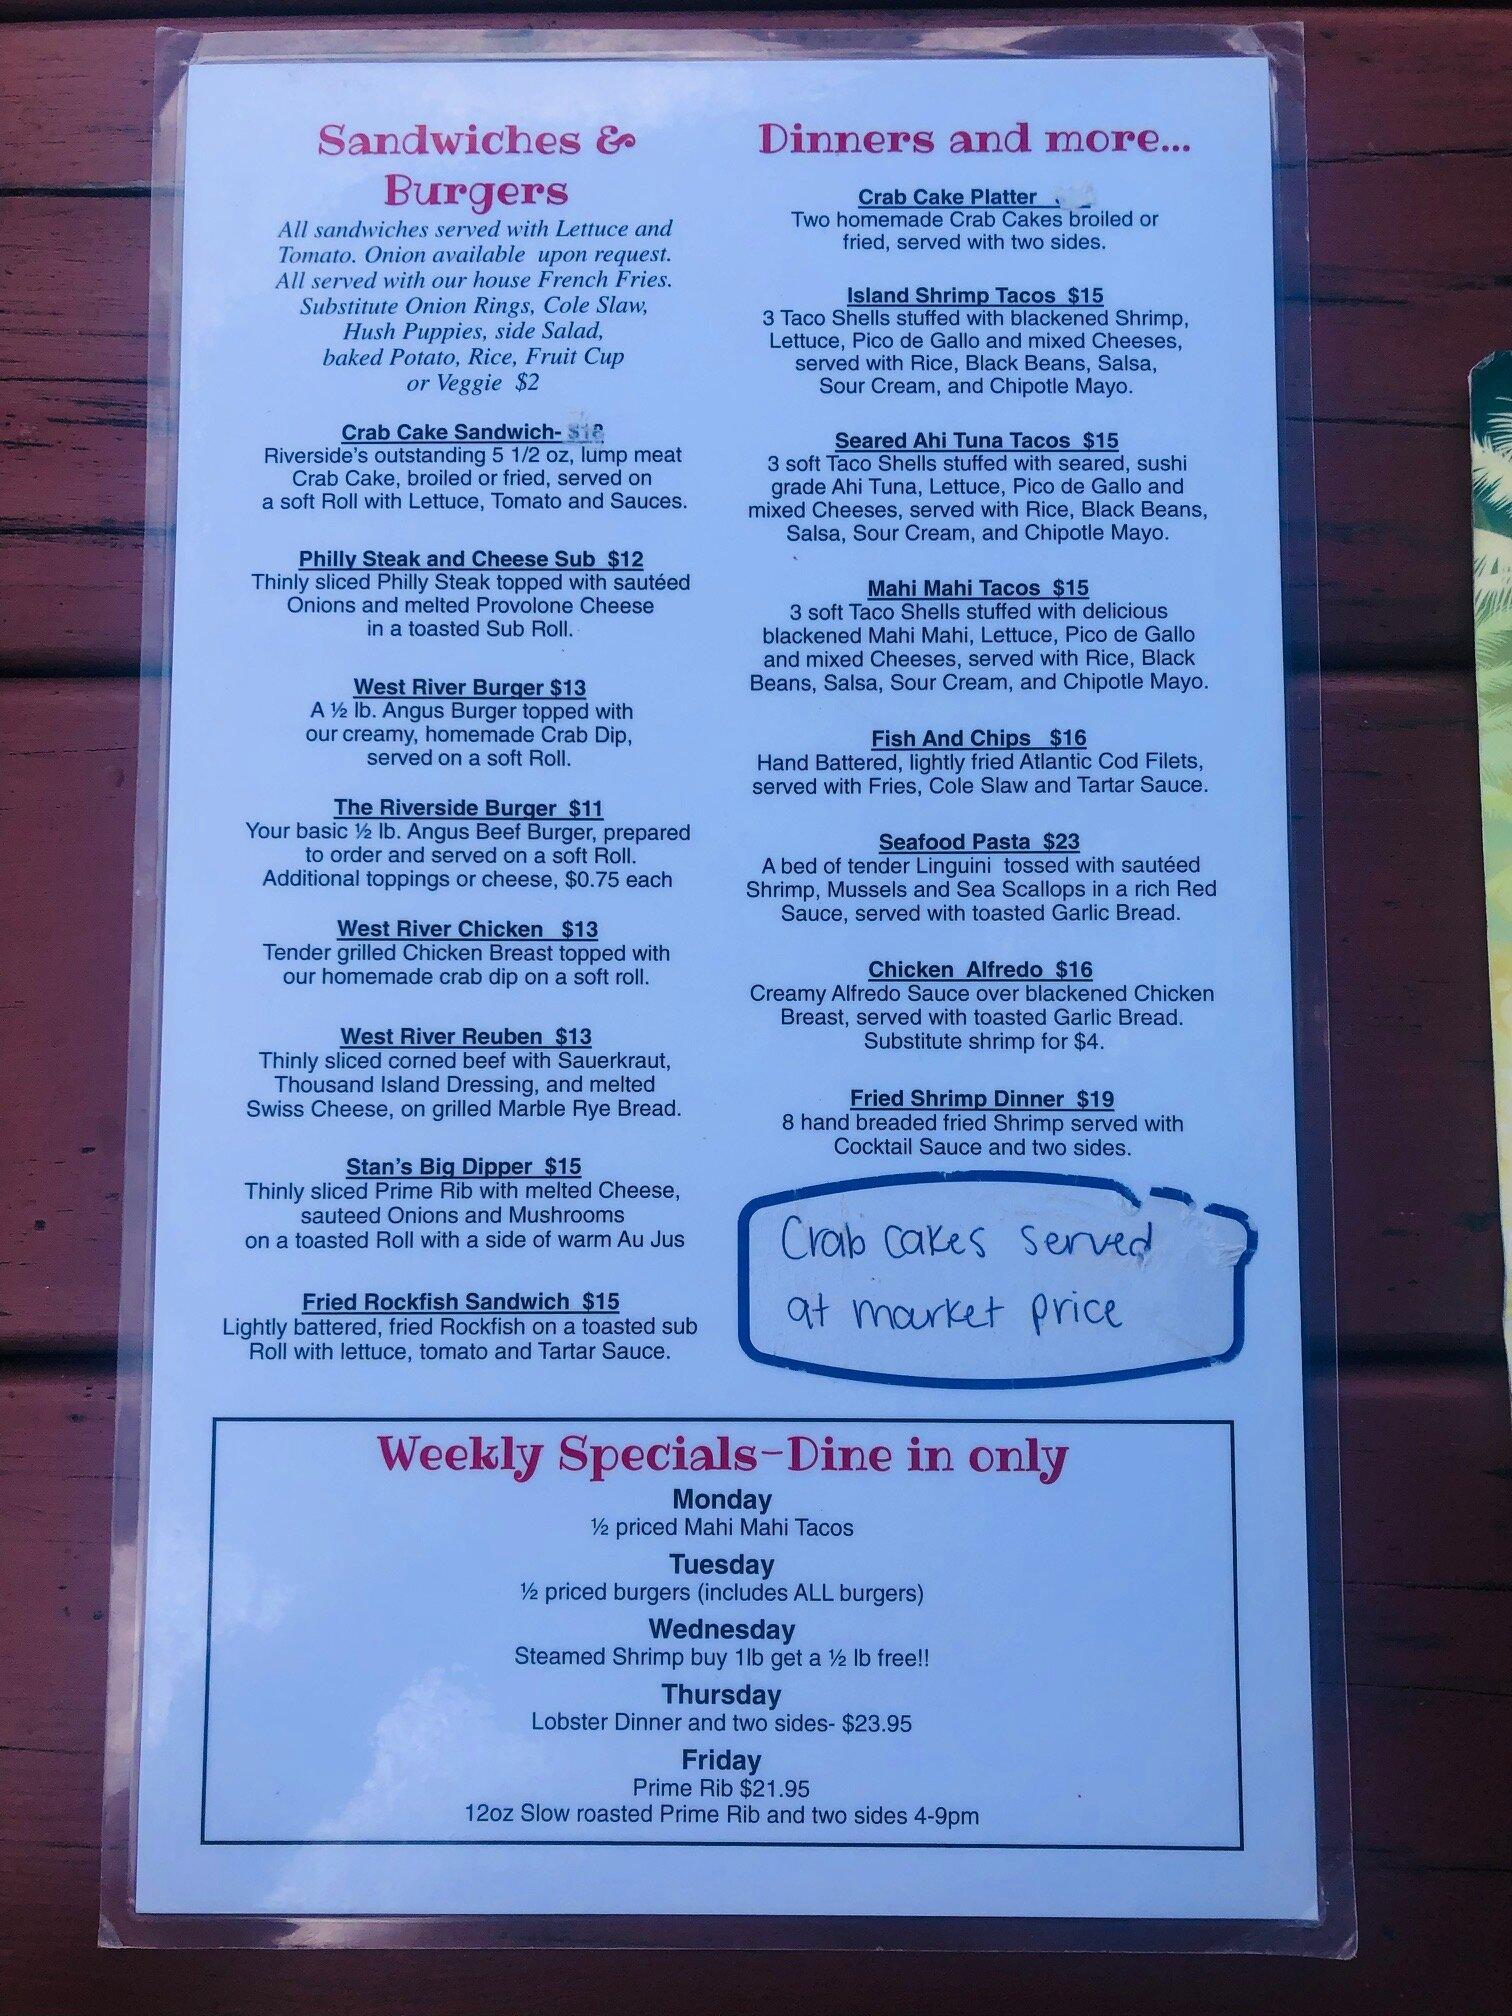 Sandwiches &
Burgers
All sandwiches served with Lettuce and
Tomato. Onion available upon request.
All served with our house French Fries.
Substitute Onion Rings, Cole Slaw,
Hush Puppies, side Salad,
baked Potato, Rice, Fruit Cup
or Veggie $2
Crab Cake Sandwich-
Riverside's outstanding 5 1/2 oz, lump meat
Crab Cake, broiled or fried, served on
a soft Roll with Lettuce, Tomato and Sauces.
Philly Steak and Cheese Sub $12
Thinly sliced Philly Steak topped with sautéed
Onions and melted Provolone Cheese
in a toasted Sub Roll.
West River Burger $13
A ½ lb. Angus Burger topped with
our creamy, homemade Crab Dip,
served on a soft Roll.
The Riverside Burger $11
Your basic ½ lb. Angus Beef Burger, prepared
to order and served on a soft Roll.
Additional toppings or cheese, $0.75 each
West River Chicken $13
Tender grilled Chicken Breast topped with
our homemade crab dip on a soft roll.
West River Reuben $13
Thinly sliced corned beef with Sauerkraut,
Thousand Island Dressing, and melted
Swiss Cheese, on grilled Marble Rye Bread.
Stan's Big Dipper $15
Thinly sliced Prime Rib with melted Cheese,
sauteed Onions and Mushrooms
on a toasted Roll with a side of warm Au Jus
Fried Rockfish Sandwich $15
Lightly battered, fried Rockfish on a toasted sub
Roll with lettuce, tomato and Tartar Sauce.
Dinners and more...
Crab Cake Platter
Two homemade Crab Cakes broiled or
fried, served with two sides.
Island Shrimp Tacos $15
3 Taco Shells stuffed with blackened Shrimp,
Lettuce, Pico de Gallo and mixed Cheeses,
served with Rice, Black Beans, Salsa,
Sour Cream, and Chipotle Mayo.
Seared Ahi Tuna Tacos $15
3 soft Taco Shells stuffed with seared, sushi
grade Ahi Tuna, Lettuce, Pico de Gallo and
mixed Cheeses, served with Rice, Black Beans,
Salsa, Sour Cream, and Chipotle Mayo.
Mahi Mahi Tacos $15
3 soft Taco Shells stuffed with delicious
blackened Mahi Mahi, Lettuce, Pico de Gallo
and mixed Cheeses, served with Rice, Black
Beans, Salsa, Sour Cream, and Chipotle Mayo.
Fish And Chips $16
Hand Battered, lightly fried Atlantic Cod Filets,
served with Fries, Cole Slaw and Tartar Sauce.
Seafood Pasta $23
A bed of tender Linguini tossed with sautéed
Shrimp, Mussels and Sea Scallops in a rich Red
Sauce, served with toasted Garlic Bread.
Chicken Alfredo $16
Creamy Alfredo Sauce over blackened Chicken
Breast, served with toasted Garlic Bread.
Substitute shrimp for $4.
Fried Shrimp Dinner $19
8 hand breaded fried Shrimp served with
Cocktail Sauce and two sides.
Crab cakes served
at market price
Weekly Specials-Dine in only
Monday
½ priced Mahi Mahi Tacos
Tuesday
½ priced burgers (includes ALL burgers)
Wednesday
Steamed Shrimp buy 1lb get a ½ lb free!!
Thursday
Lobster Dinner and two sides- $23.95
Friday
Prime Rib $21.95
12oz Slow roasted Prime Rib and two sides 4-9pm